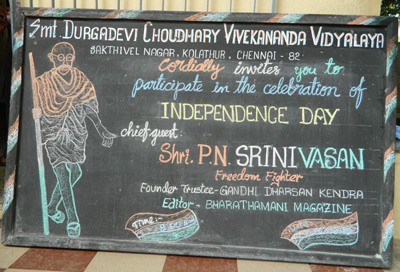 Smt. DURGADEVI CHOUDHARY VIVEKANANDA VIDYALAYA
SAKTHIVEL NAGAR, KOLATHUR, CHENNAI - 82
Cordially invites you to
participate in the celebration of
INDEPENDENCE DAY
chief-guest:
Shri. P.N. SRINIVASAN
Freedom Fighter
Founder Trustee-GANDHI DHARSAN KENDRA
Editor - BHARATHAMANI MAGAZINE
TIME:-